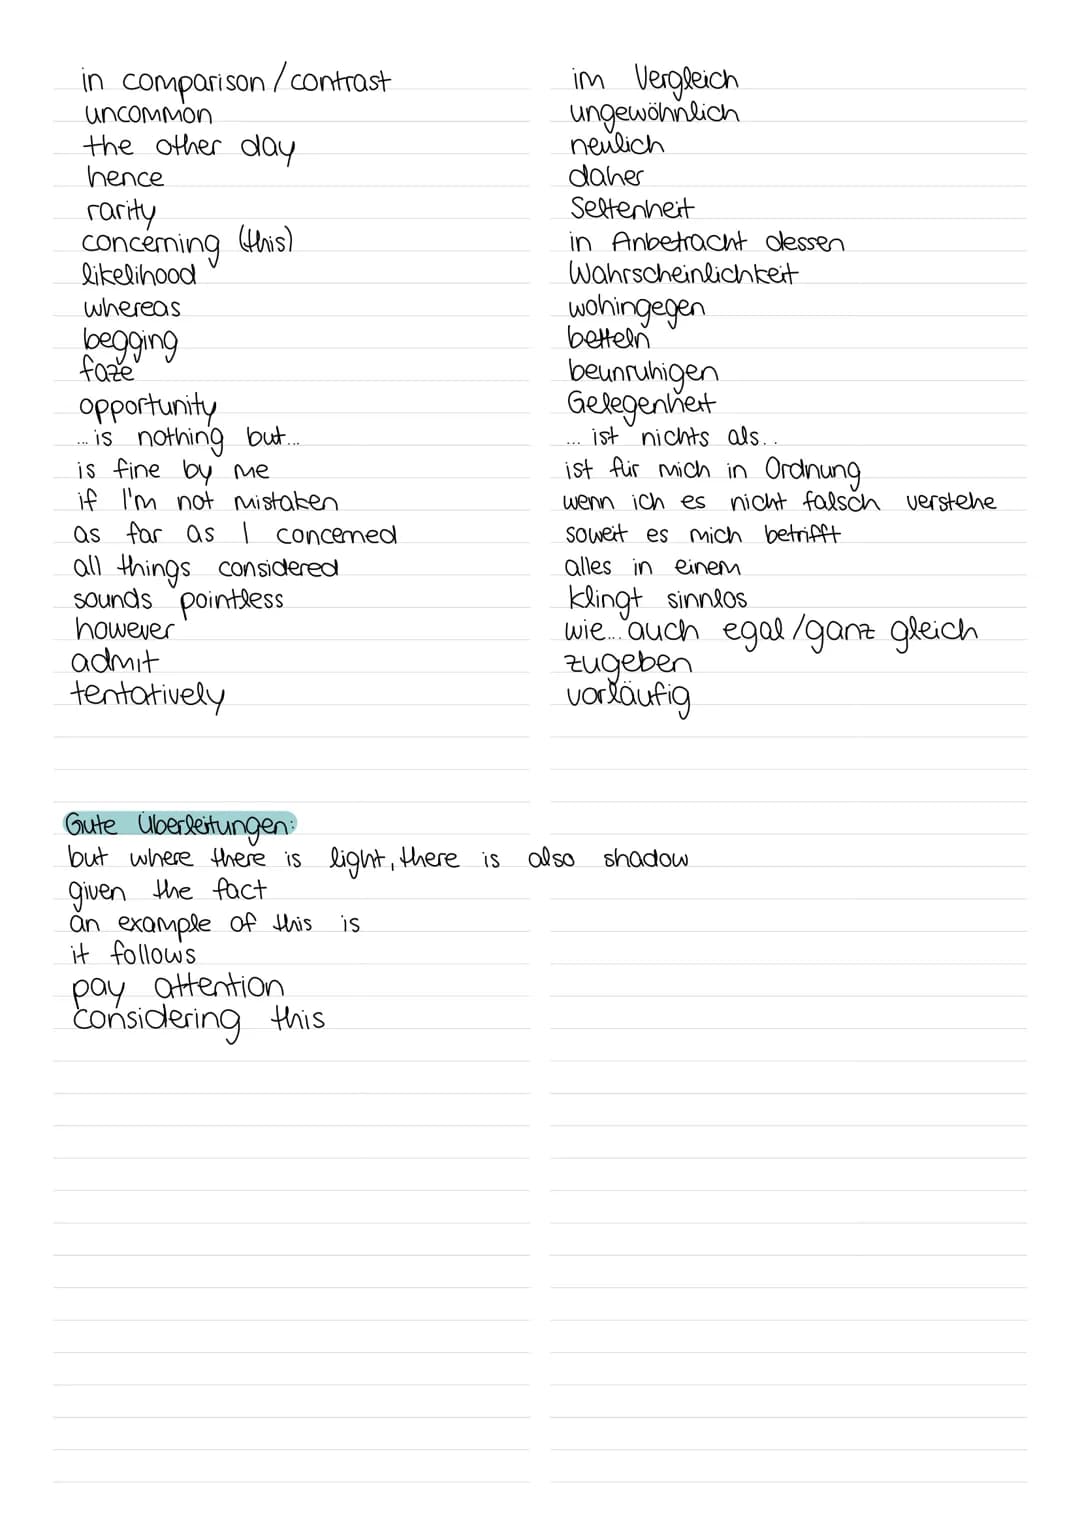 in comparison / contrast im Vergleich
uncommon ungewöhnlich
the other day neulich
hence daher
rarity Seltenheit
concerning (this) in Anbetracht dessen
likelihood Wahrscheinlichkeit
whereas wohingegen
begging betteln
faze beunruhigen
opportunity Gelegenheit
... is nothing but... ... ist nichts als..
is fine by me ist für mich in Ordnung
if I'm not mistaken wenn ich es nicht falsch verstehe
as far as I concerned soweit es mich betrifft
all things considered alles in einem
sounds pointless klingt sinnlos
however wie... auch egal / ganz gleich
admit zugeben
tentatively vorläufig
Gute Überleitungen:
but where there is light, there is also shadow
given the fact
an example of this is
it follows
pay attention
considering this